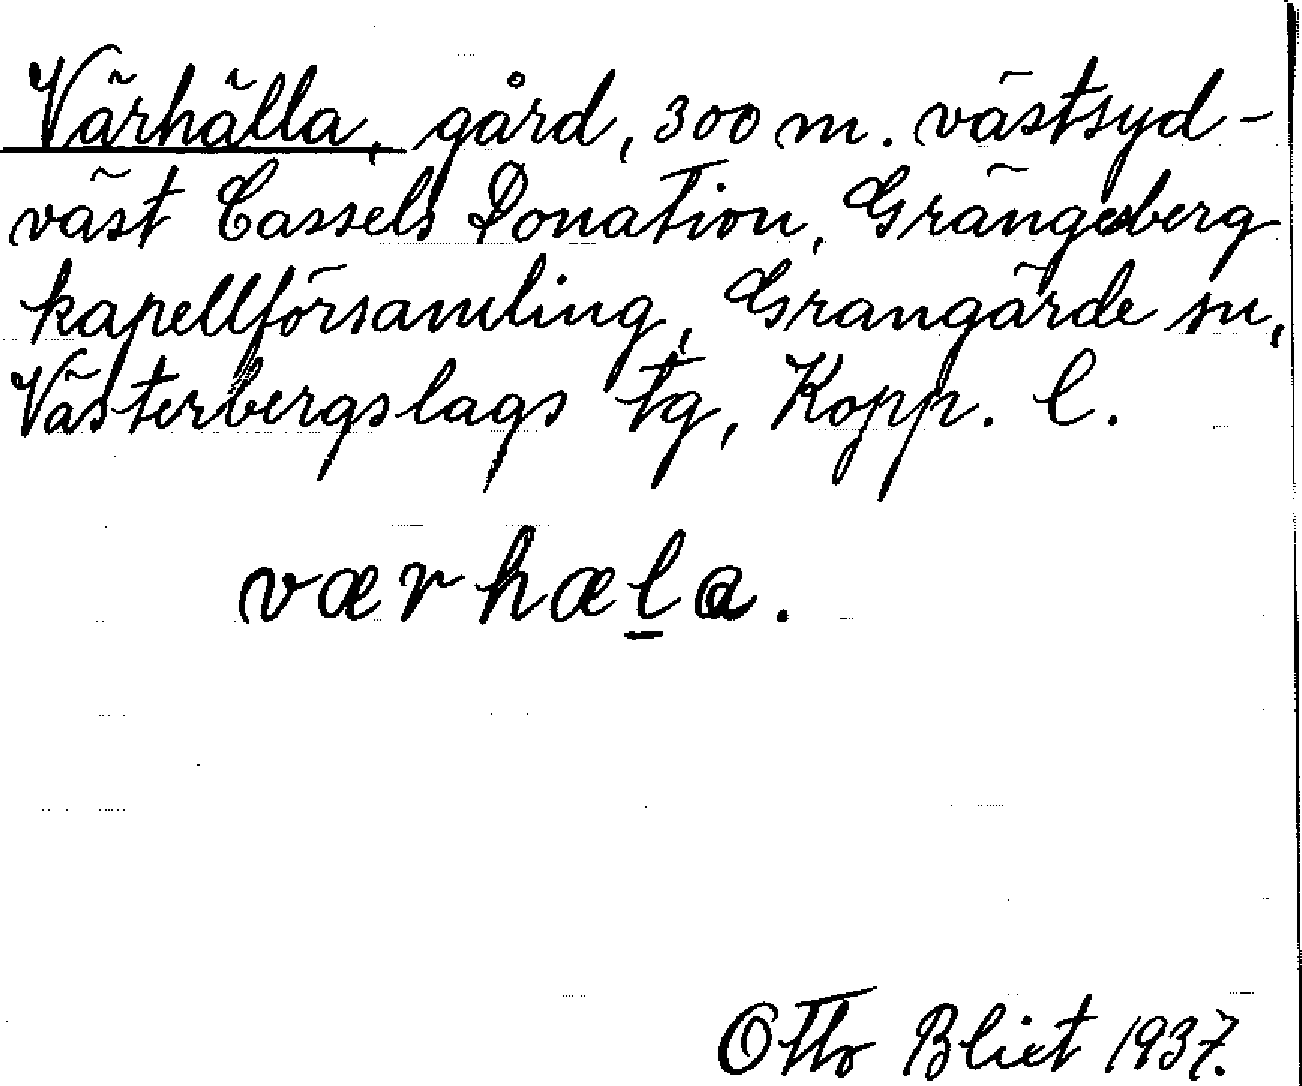 Värhälla, gård, 300 m. västsyd-
väst Cassels Donation, Grängesberg
kapellförsamling, Grangärde sn,
Västerbergslags tg, Kopp. l.
værhæl̲a.
Otto Blixt 1937.